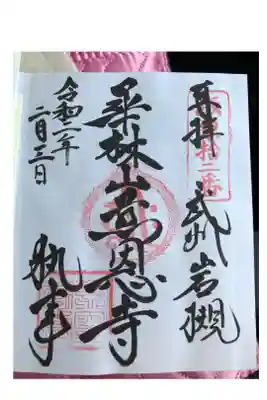 坂東拾二番
奉拝 武州岩槻
華林山慈恩寺
執事
令和二年
二月三日